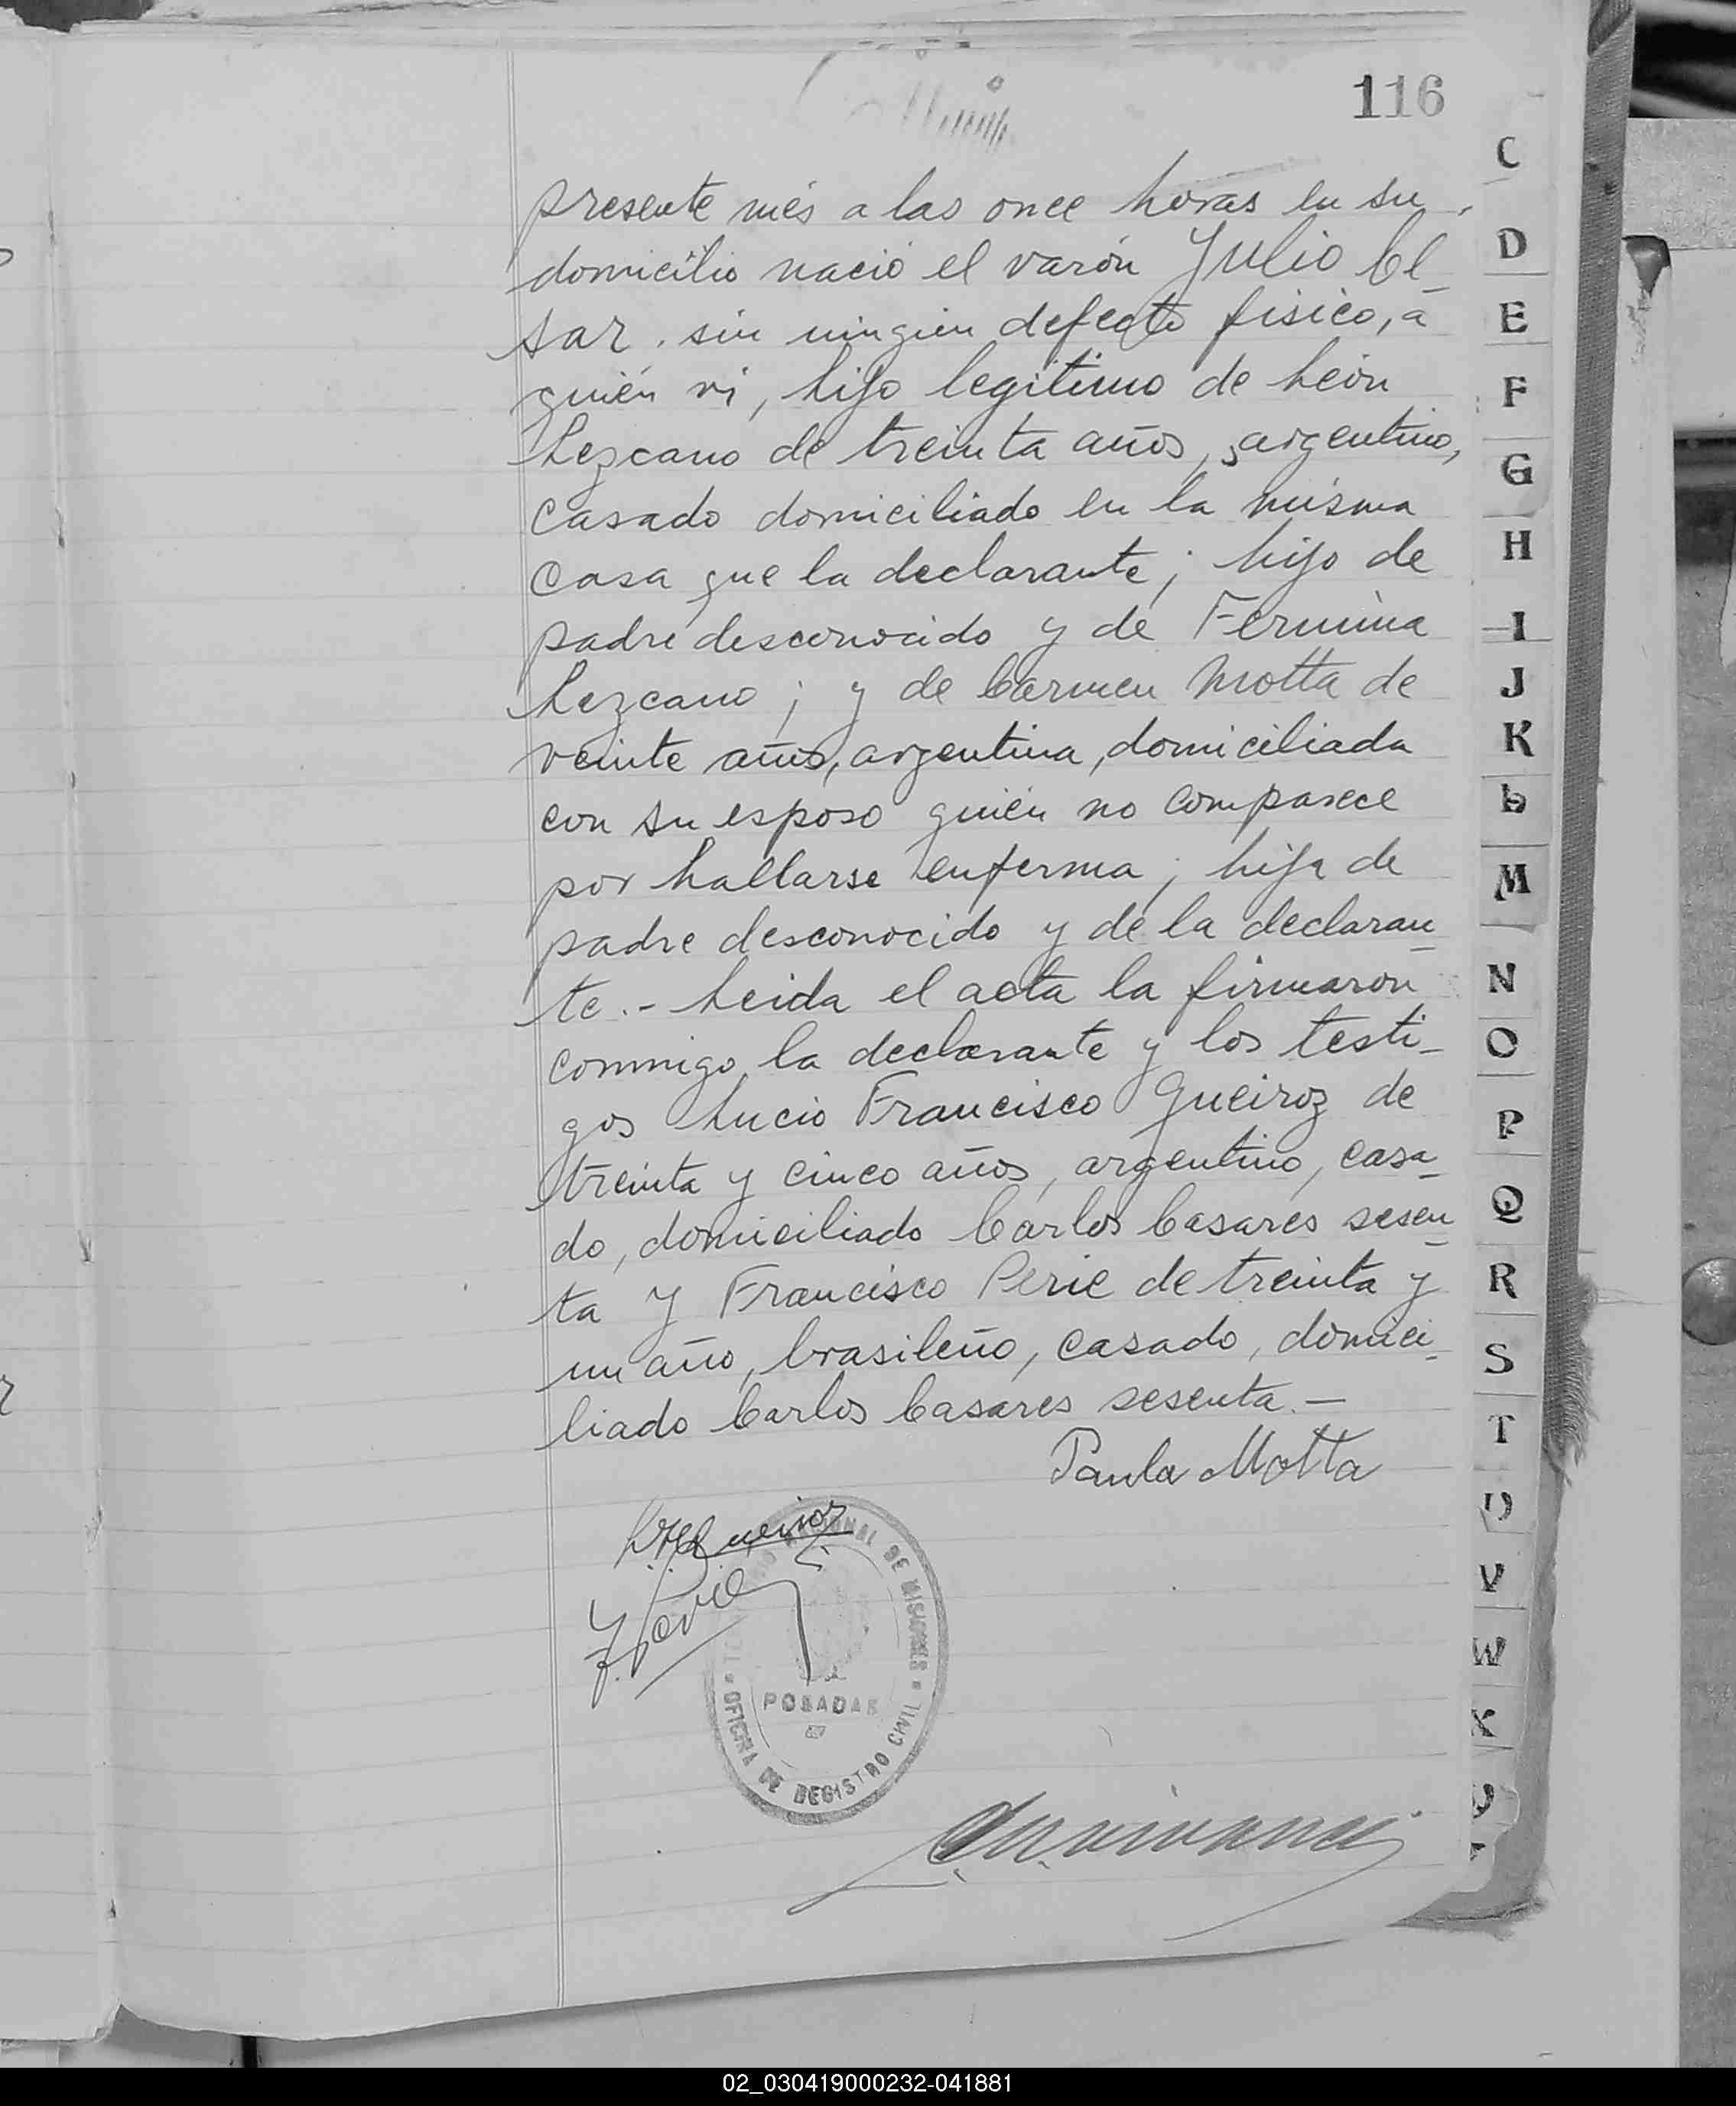 116
presente més a las once horas en su
domicilio nació el varón Julio Cé-
sar. sin ningún defecto fisico, a
quién vi, hijo legitimo de León
Lezcano de treinta años, argentino,
casado domiciliado en la misma
casa que la declarante; hijo de
padre desconocido y de Fermina
Lezcano; y de Carmen Motta de
veinte años, argentina, domiciliada
con su esposo quién no comparece
por hallarse enferma; hija de
padre desconocido y de la declaran-
te.- Leida el acta la firmaron
conmigo, la declarante y los testi-
gos Lucio Francisco Queiroz de
treinta y cinco años, argentino, casa-
do, domiciliado Carlos Casares sesen-
ta y Francisco Perie de treinta y
un año, brasileño, casado, domici-
liado Carlos Casares sesenta.-
Paula Motta
Queiroz
F. Perie
NACIONAL DE MISIONES
POSADAS
OFICINA DE REGISTRO CIVIL
C
D
E
F
G
H
I
J
K
L
M
N
O
P
Q
R
S
T
U
V
W
X
02_030419000232-041881